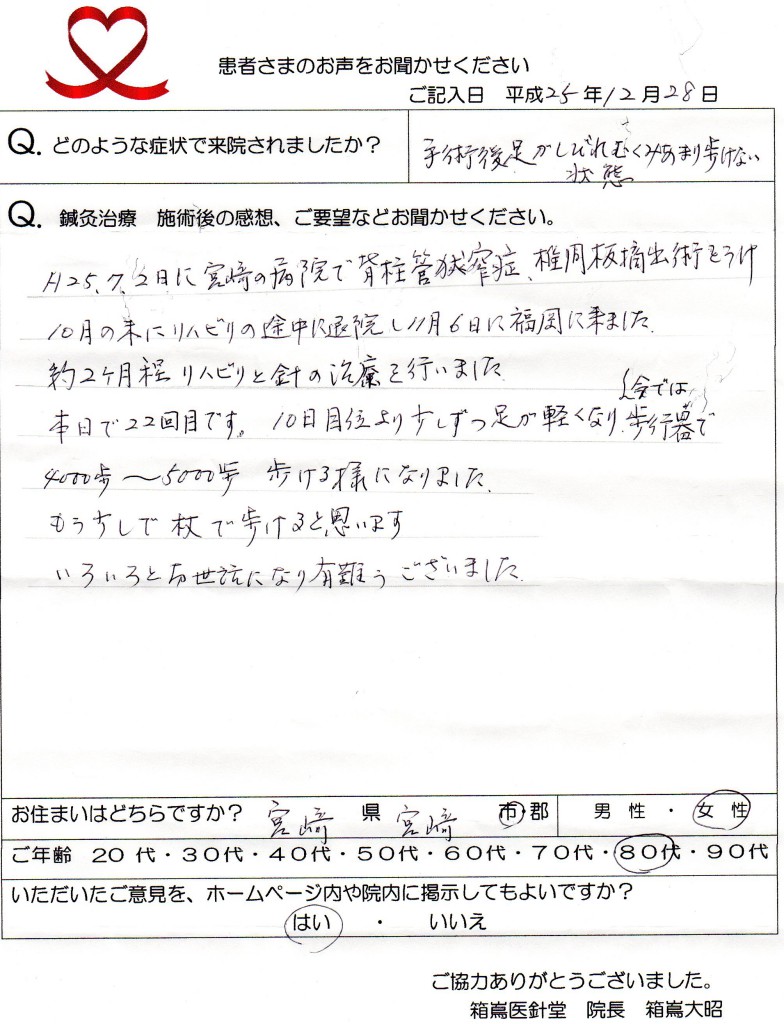 患者さまのお声をお聞かせください
ご記入日 平成25年12月28日
Q. どのような症状で来院されましたか？
手術後足がしびれむくみあまり歩けない
状態
Q. 鍼灸治療 施術後の感想、ご要望などお聞かせください。
H25.7.2日に宮崎の病院で脊柱管狭窄症、椎間板摘出術をうけ
10月の末にリハビリの途中に退院し11月6日に福岡に来ました.
約2ヶ月程リハビリと針の治療を行いました
本日で22回目です。10日目位より少しずつ足が軽くなり.今では歩行器で
4000歩〜5000歩 歩ける様になりました.
もう少しで杖で歩けると思います
いろいろとお世話になり有難うございました.
お住まいはどちらですか？ 宮崎 県 宮崎 市・郡 男性・女性
ご年齢 20代・30代・40代・50代・60代・70代・80代・90代
いただいたご意見を、ホームページ内や院内に掲示してもよいですか？
はい ・ いいえ
ご協力ありがとうございました。
箱嶌医針堂 院長 箱嶌大昭